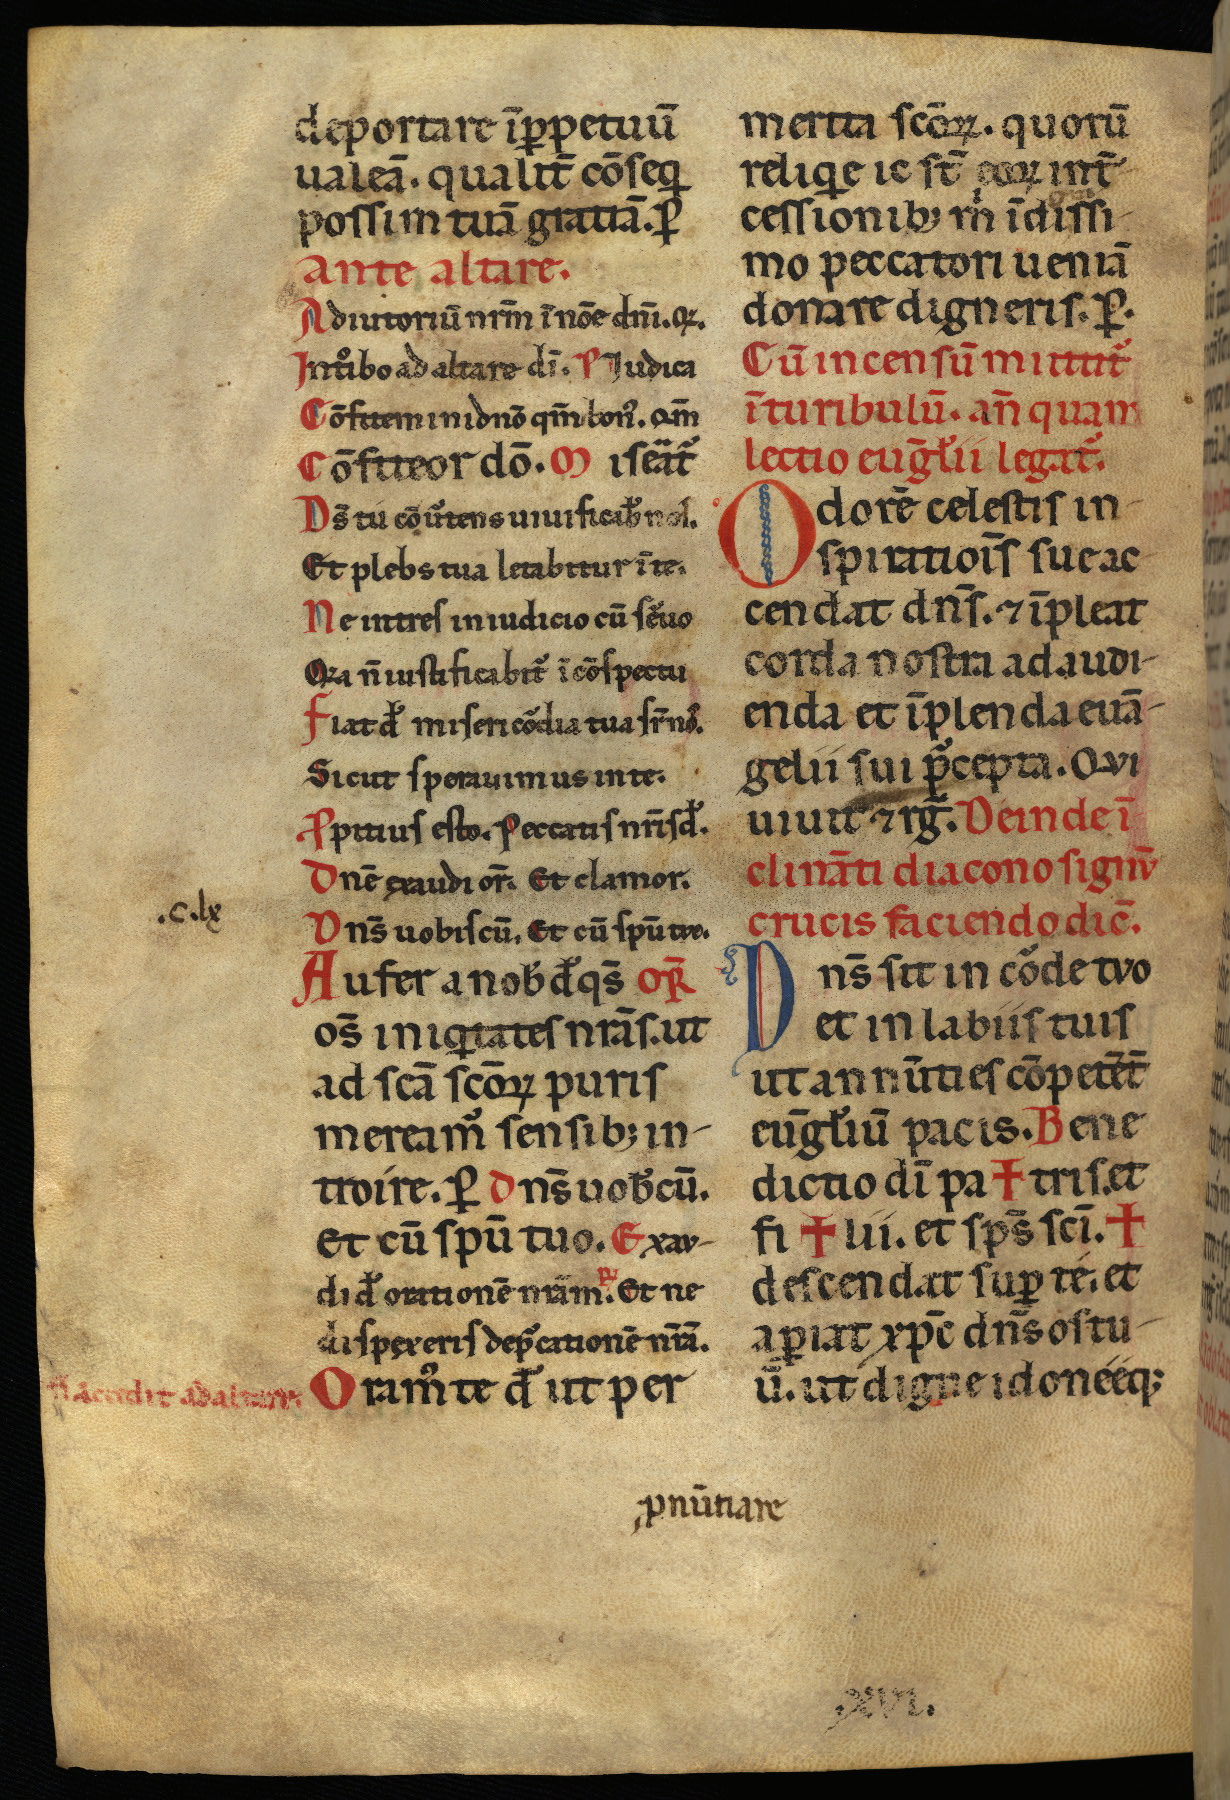 deportare ī ꝑpetuū
ualeā. qualit̄ cōseq̇
possim tuā gratiā. ꝑ
Ante altare.
Adiutoriū nr̄m ī nōe dn̄i. Qꝫ.
Introibo ad altare dī. P Judica
Cōfitemini dn̄o qm̄ bonꝰ. Qm̄
Cōfiteor dō. Misēat᷑
Ds̄ tu cōu̓tens uiuificab̓ nos.
Et plebs tua letabitur ī te.
Ne intres in iudicio cū s̓uo
Qꝛa n̄ iustificabit᷑ ī cōspectu
Fiat d̓ misericōdia tua sr̄ noꝰ.
Sicut sperauimus in te.
Ꝓpitius esto. Peccatis nr̄is d̓.
Dn̄e exaudi or̄. Et clamor.
.c.lx
Dn̄s uobiscū. Et cū spū tuo.
Aufer a nob̓ d̓ qs̄ OR̄
os̄ iniq̇tates nr̄as. ut
ad sc̄a sc̄oꝝ puris
meream᷑ sensibꝫ in-
troire. ꝑ Dn̄s uob̓cū.
Et cū spū tuo. Exau-
di d̓ orationē nr̄am. Et ne
dispexeris dep̄cationē nr̄a.
accedit ad altare.
Oramꝰ te d̓ ut per
merita sc̄oꝝ. quorū
reliq̇e ic st̄ eoꝝ int̄-
cessionibꝫ m̓ īdissi-
mo peccatori ueniā
donare digneris. ꝑ.
Cū incensū mittit᷑
ī turibulū. an̄ quam
lectio euḡlii legat᷑.
Odorē celestis in-
spiratiois̄ sue ac
cendat dn̄s. ⁊ īpleat
corda nostra ad audi-
enda et īplenda euā-
gelii sui p̄cepta. Qui
uiuit ⁊ rḡ. Deinde ī
clināti diacono signū
crucis faciendo dic̄.
Dn̄s sit in cōde tuo
et in labiis tuis
ut annūties cōpetēt̄
euḡliū pacis. Bene
dictio dī pa ✝ tris. et
fi ✝ lii. et sps̄ sc̄i. ✝
descendat suꝑ te. et
aꝑiat xp̄c dn̄s os tu-
ū. ut digne idoneeqꝫ
ꝓnūtiare
xvi.